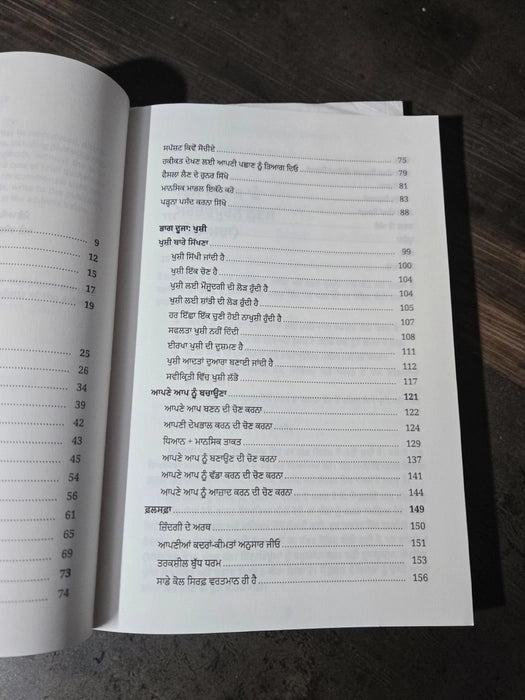 9
12
15
17
19
25
26
34
39
42
43
45
54
56
61
65
69
73
74
ਸਪੱਸ਼ਟ ਕਿਵੇਂ ਸੋਚੀਏ 75
ਹਕੀਕਤ ਦੇਖਣ ਲਈ ਆਪਣੀ ਪਛਾਣ ਨੂੰ ਤਿਆਗ ਦਿਓ 79
ਫੈਸਲਾ ਲੈਣ ਦੇ ਹੁਨਰ ਸਿੱਖੋ 81
ਮਾਨਸਿਕ ਮਾਡਲ ਇਕੱਠੇ ਕਰੋ 83
ਪੜ੍ਹਨਾ ਪਸੰਦ ਕਰਨਾ ਸਿੱਖੋ 88
ਭਾਗ ਦੂਜਾ: ਖੁਸ਼ੀ
ਖੁਸ਼ੀ ਬਾਰੇ ਸਿੱਖਣਾ 99
ਖੁਸ਼ੀ ਸਿੱਖੀ ਜਾਂਦੀ ਹੈ 100
ਖੁਸ਼ੀ ਇੱਕ ਚੋਣ ਹੈ 104
ਖੁਸ਼ੀ ਲਈ ਮੌਜੂਦਗੀ ਦੀ ਲੋੜ ਹੁੰਦੀ ਹੈ 104
ਖੁਸ਼ੀ ਲਈ ਸ਼ਾਂਤੀ ਦੀ ਲੋੜ ਹੁੰਦੀ ਹੈ 105
ਹਰ ਇੱਛਾ ਇੱਕ ਚੁਣੀ ਹੋਈ ਨਾਖੁਸ਼ੀ ਹੁੰਦੀ ਹੈ 107
ਸਫਲਤਾ ਖੁਸ਼ੀ ਨਹੀਂ ਦਿੰਦੀ 108
ਈਰਖਾ ਖੁਸ਼ੀ ਦੀ ਦੁਸ਼ਮਣ ਹੈ 111
ਖੁਸ਼ੀ ਆਦਤਾਂ ਦੁਆਰਾ ਬਣਾਈ ਜਾਂਦੀ ਹੈ 112
ਸਵੀਕ੍ਰਿਤੀ ਵਿੱਚ ਖੁਸ਼ੀ ਲੱਭੋ 117
ਆਪਣੇ ਆਪ ਨੂੰ ਬਚਾਉਣਾ 121
ਆਪਣੇ ਆਪ ਬਣਨ ਦੀ ਚੋਣ ਕਰਨਾ 122
ਆਪਣੀ ਦੇਖਭਾਲ ਕਰਨ ਦੀ ਚੋਣ ਕਰਨਾ 124
ਧਿਆਨ + ਮਾਨਸਿਕ ਤਾਕਤ 129
ਆਪਣੇ ਆਪ ਨੂੰ ਬਣਾਉਣ ਦੀ ਚੋਣ ਕਰਨਾ 137
ਆਪਣੇ ਆਪ ਨੂੰ ਵੱਡਾ ਕਰਨ ਦੀ ਚੋਣ ਕਰਨਾ 141
ਆਪਣੇ ਆਪ ਨੂੰ ਆਜ਼ਾਦ ਕਰਨ ਦੀ ਚੋਣ ਕਰਨਾ 144
ਫ਼ਲਸਫ਼ਾ 149
ਜ਼ਿੰਦਗੀ ਦੇ ਅਰਥ 150
ਆਪਣੀਆਂ ਕਦਰਾਂ-ਕੀਮਤਾਂ ਅਨੁਸਾਰ ਜੀਓ 151
ਤਰਕਸ਼ੀਲ ਬੁੱਧ ਧਰਮ 153
ਸਾਡੇ ਕੋਲ ਸਿਰਫ਼ ਵਰਤਮਾਨ ਹੀ ਹੈ 156